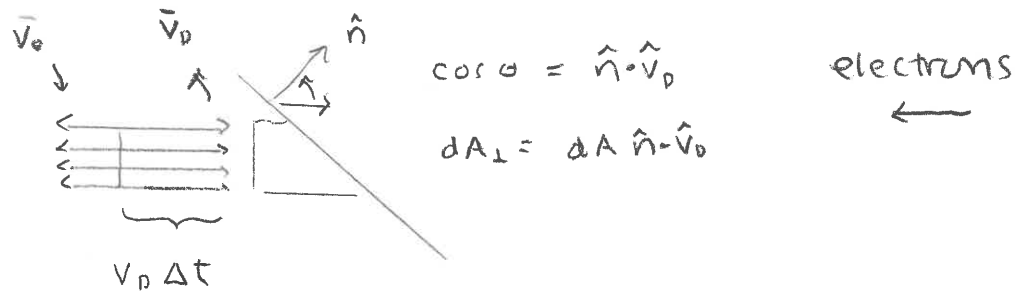 v̄₀ v̄_D n̂
cos θ = n̂·v̂_D
electrons
dA⊥ = dA n̂·v̂_D
v_D Δt